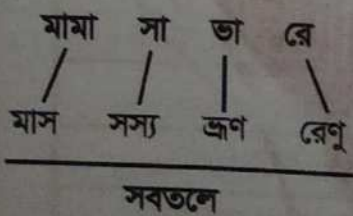 মামা সা ভা রে
মাস সস্য ভ্রূণ রেণু
সবতলে